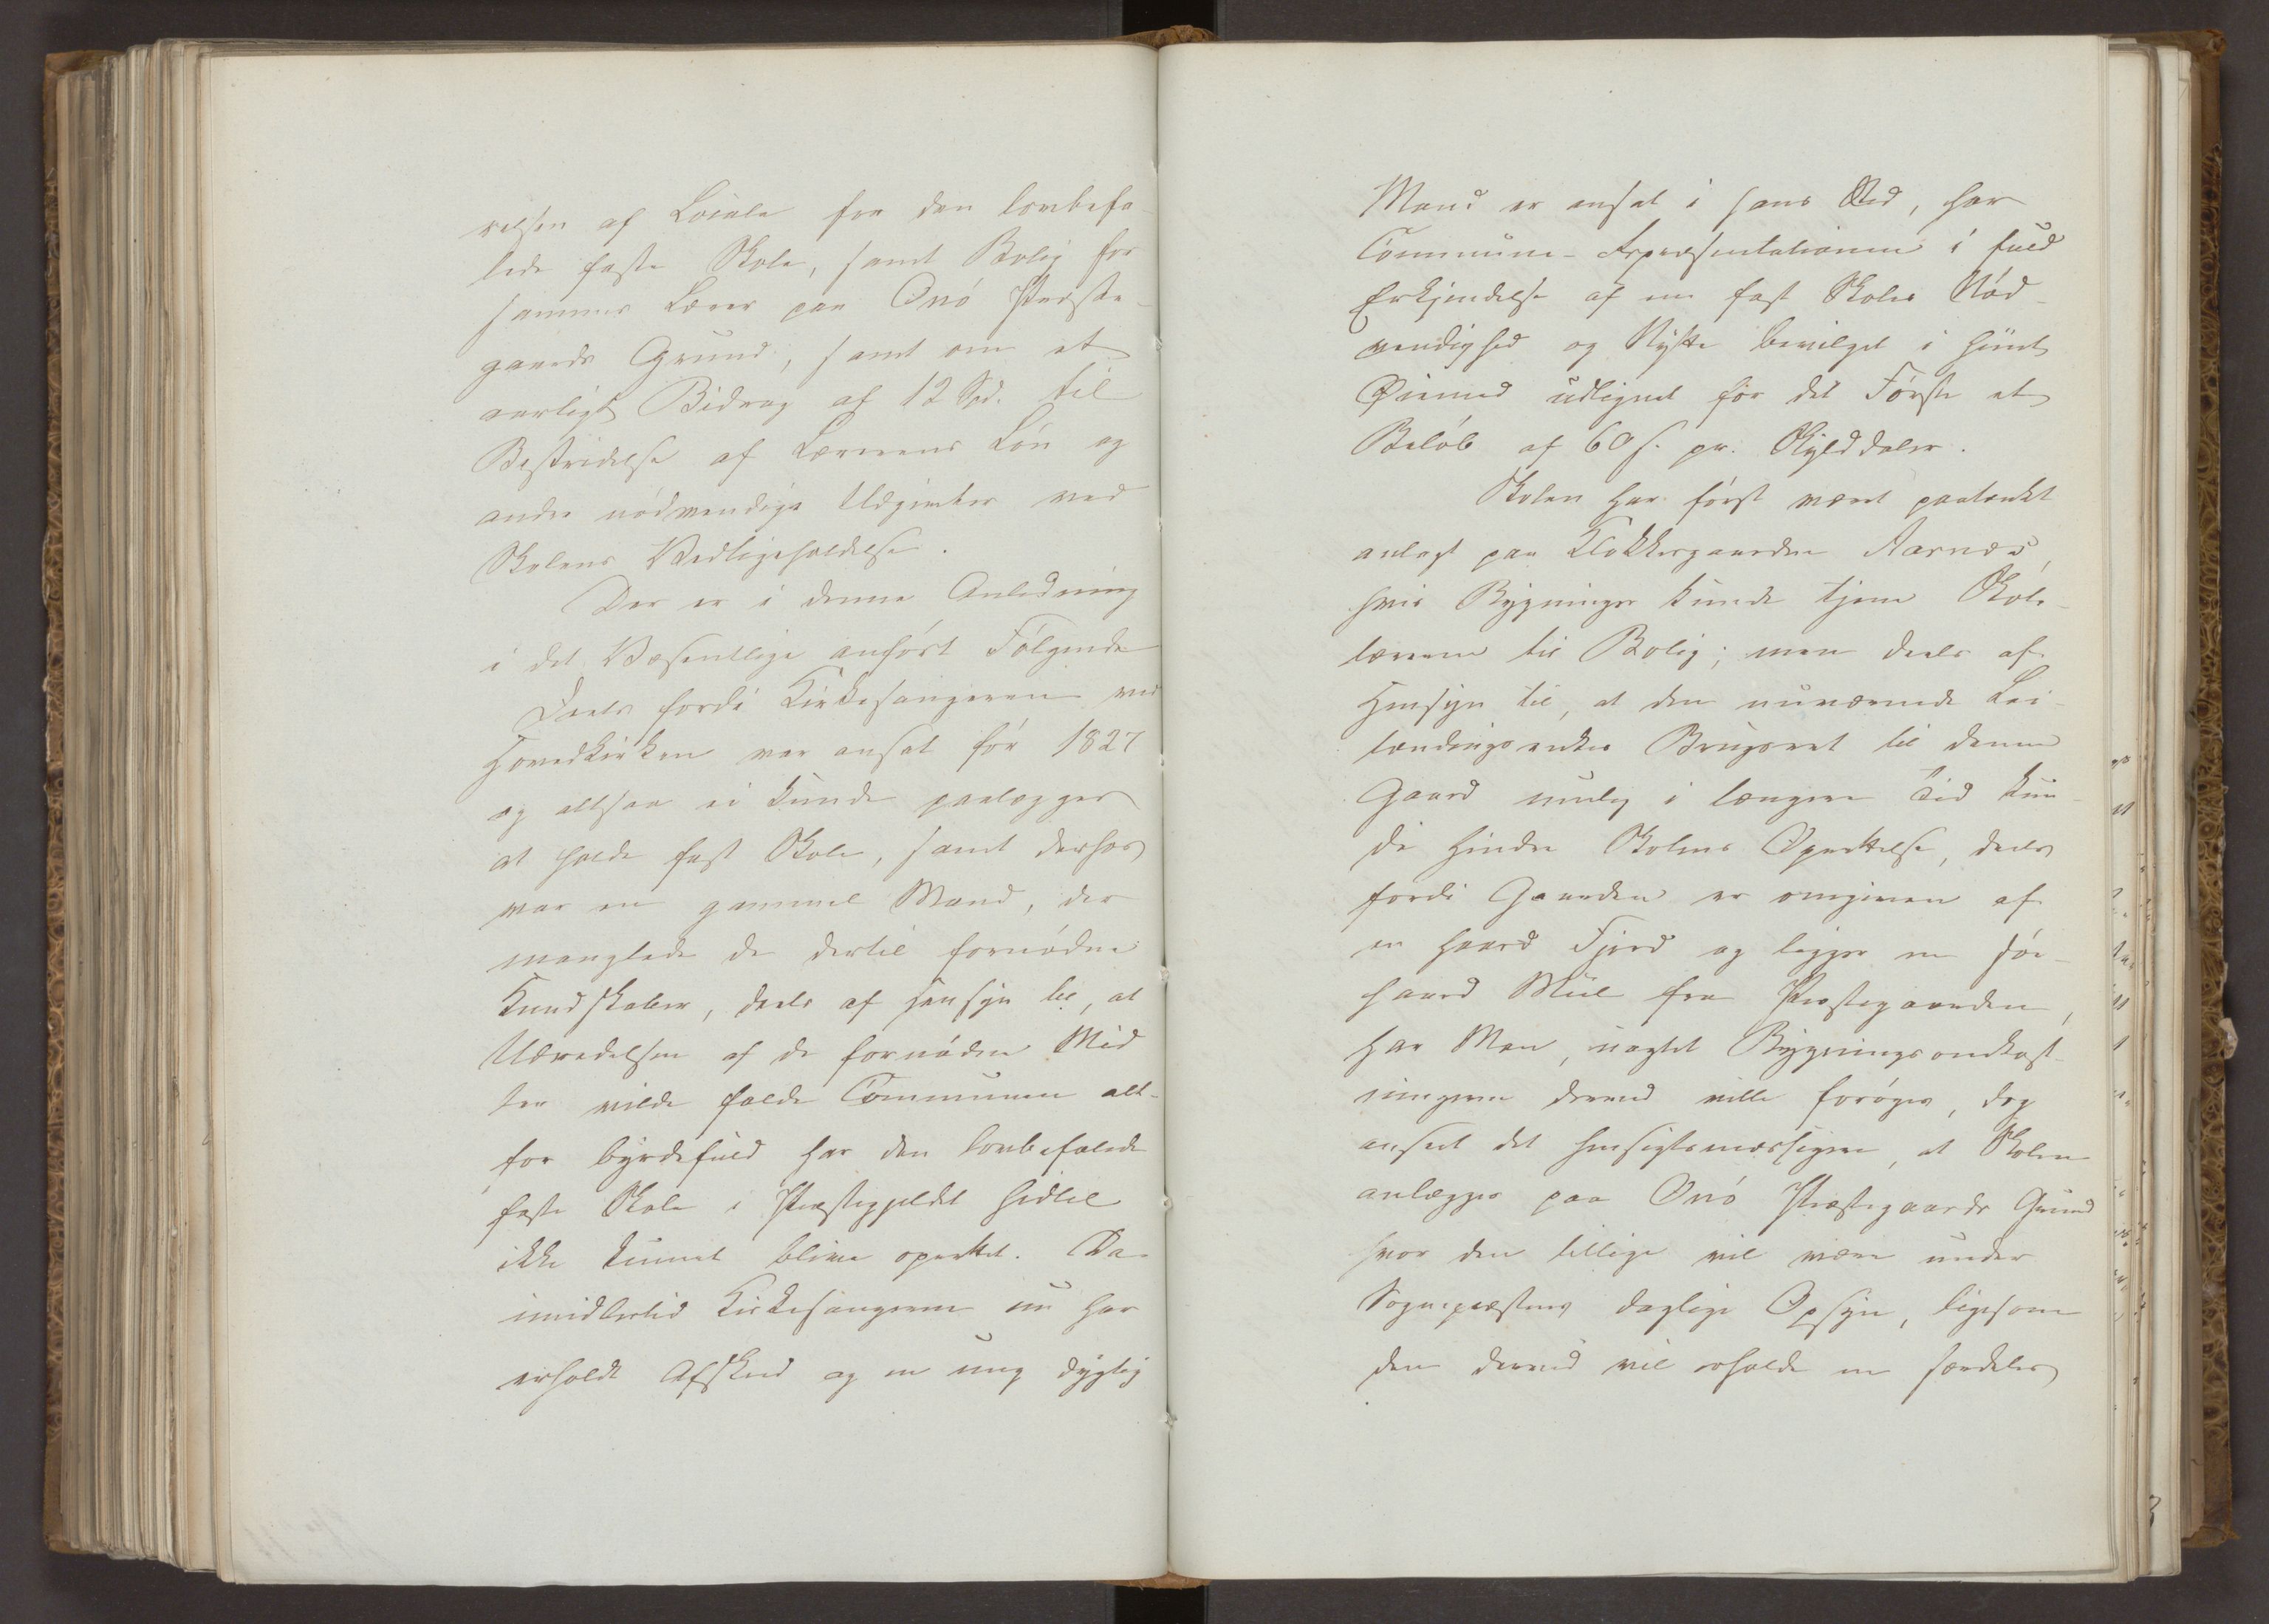 relsen af Locale for den lovbefa-
lede faste Skole, samt Bolig for
sammes Lærer paa Onö Præste-
gaards Grund, samt om et
aarligt Bidrag af 12 Spd. til
Bestridelse af Lærerens Lön og
andre nödvendige Udgivter ved
Skolens Vedligeholdelse.
Der er i denne Anledning
i det Væsentlige anfört Fölgende
Deels fordi Kirkesangeren ved
Hovedkirken var ansat för 1827
og altsaa ei kunde paalægges
at holde fast Skole, samt derhos
var en gammel Mand, der
manglede de dertil fornödne
Kundskaber, deels af Hensyn til, at
Udredelsen af de fornödne Mid
ler vilde falde Communen alt-
for byrdefuld har den lovbefalede
faste Skole i Præstegjeldet hidtil
ikke kunnet blive oprettet. Da
imidlertid Kirkesangeren nu har
erholdt Afsked og en ung dygtig
Mand er ansat i hans Sted, har
Commune-Repræsentationen i fuld
Erkjendelse af en fast Skoles Nöd-
vendighed og Nytte bevilget i hiint
Öiemed udlignet for det Förste et
Belöb af 60 s. pr. Skylddaler.
Skolen har först været paatænkt
anlagt paa Klokkergaarden Aarnæs,
hvis Bygninger kunde tjene Skole-
læreren til Bolig; men deels af
Hensyn til, at den nuværende Lei-
lændingsenkes Brugsret til denne
Gaard muelig i længere Tid kun-
de hindre Skolens Oprettelse, deels
fordi Gaarden er omgiven af
en haard Fjord og ligger en
haard Miil fra Præstegaarden,
har Man, uagtet Bygningsomkost-
ningerne derved ville foröges, dog
anseet det hensigtsmæssigere, at Skolen
anlægges paa Onö Præstegaards Grund
hvor den tillige vil være under
Sognepræstens daglige Opsyn, ligesom
den derved vil erholde en særdeles